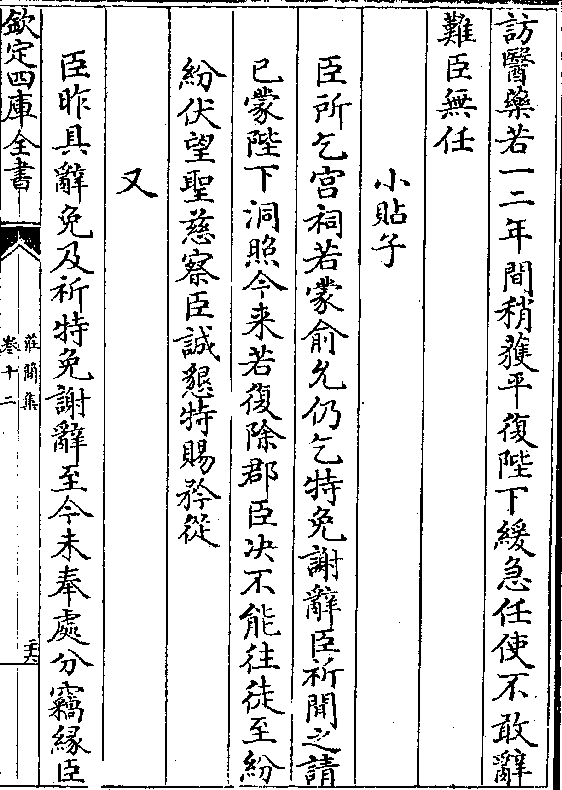 訪醫藥若一二年間稍獲平復陛下緩急任使不敢辭
難臣無任
小貼子
臣所乞宫祠若蒙俞允仍乞特免謝辭臣祈閒之請
已蒙陛下洞照今来若復除郡臣决不能往徒至紛
紛伏望聖慈察臣誠懇特賜矜從
又
臣昨具辭免及祈特免謝辭至今未奉處分竊緣臣
欽定四庫全書
莊簡集
卷十二
二六